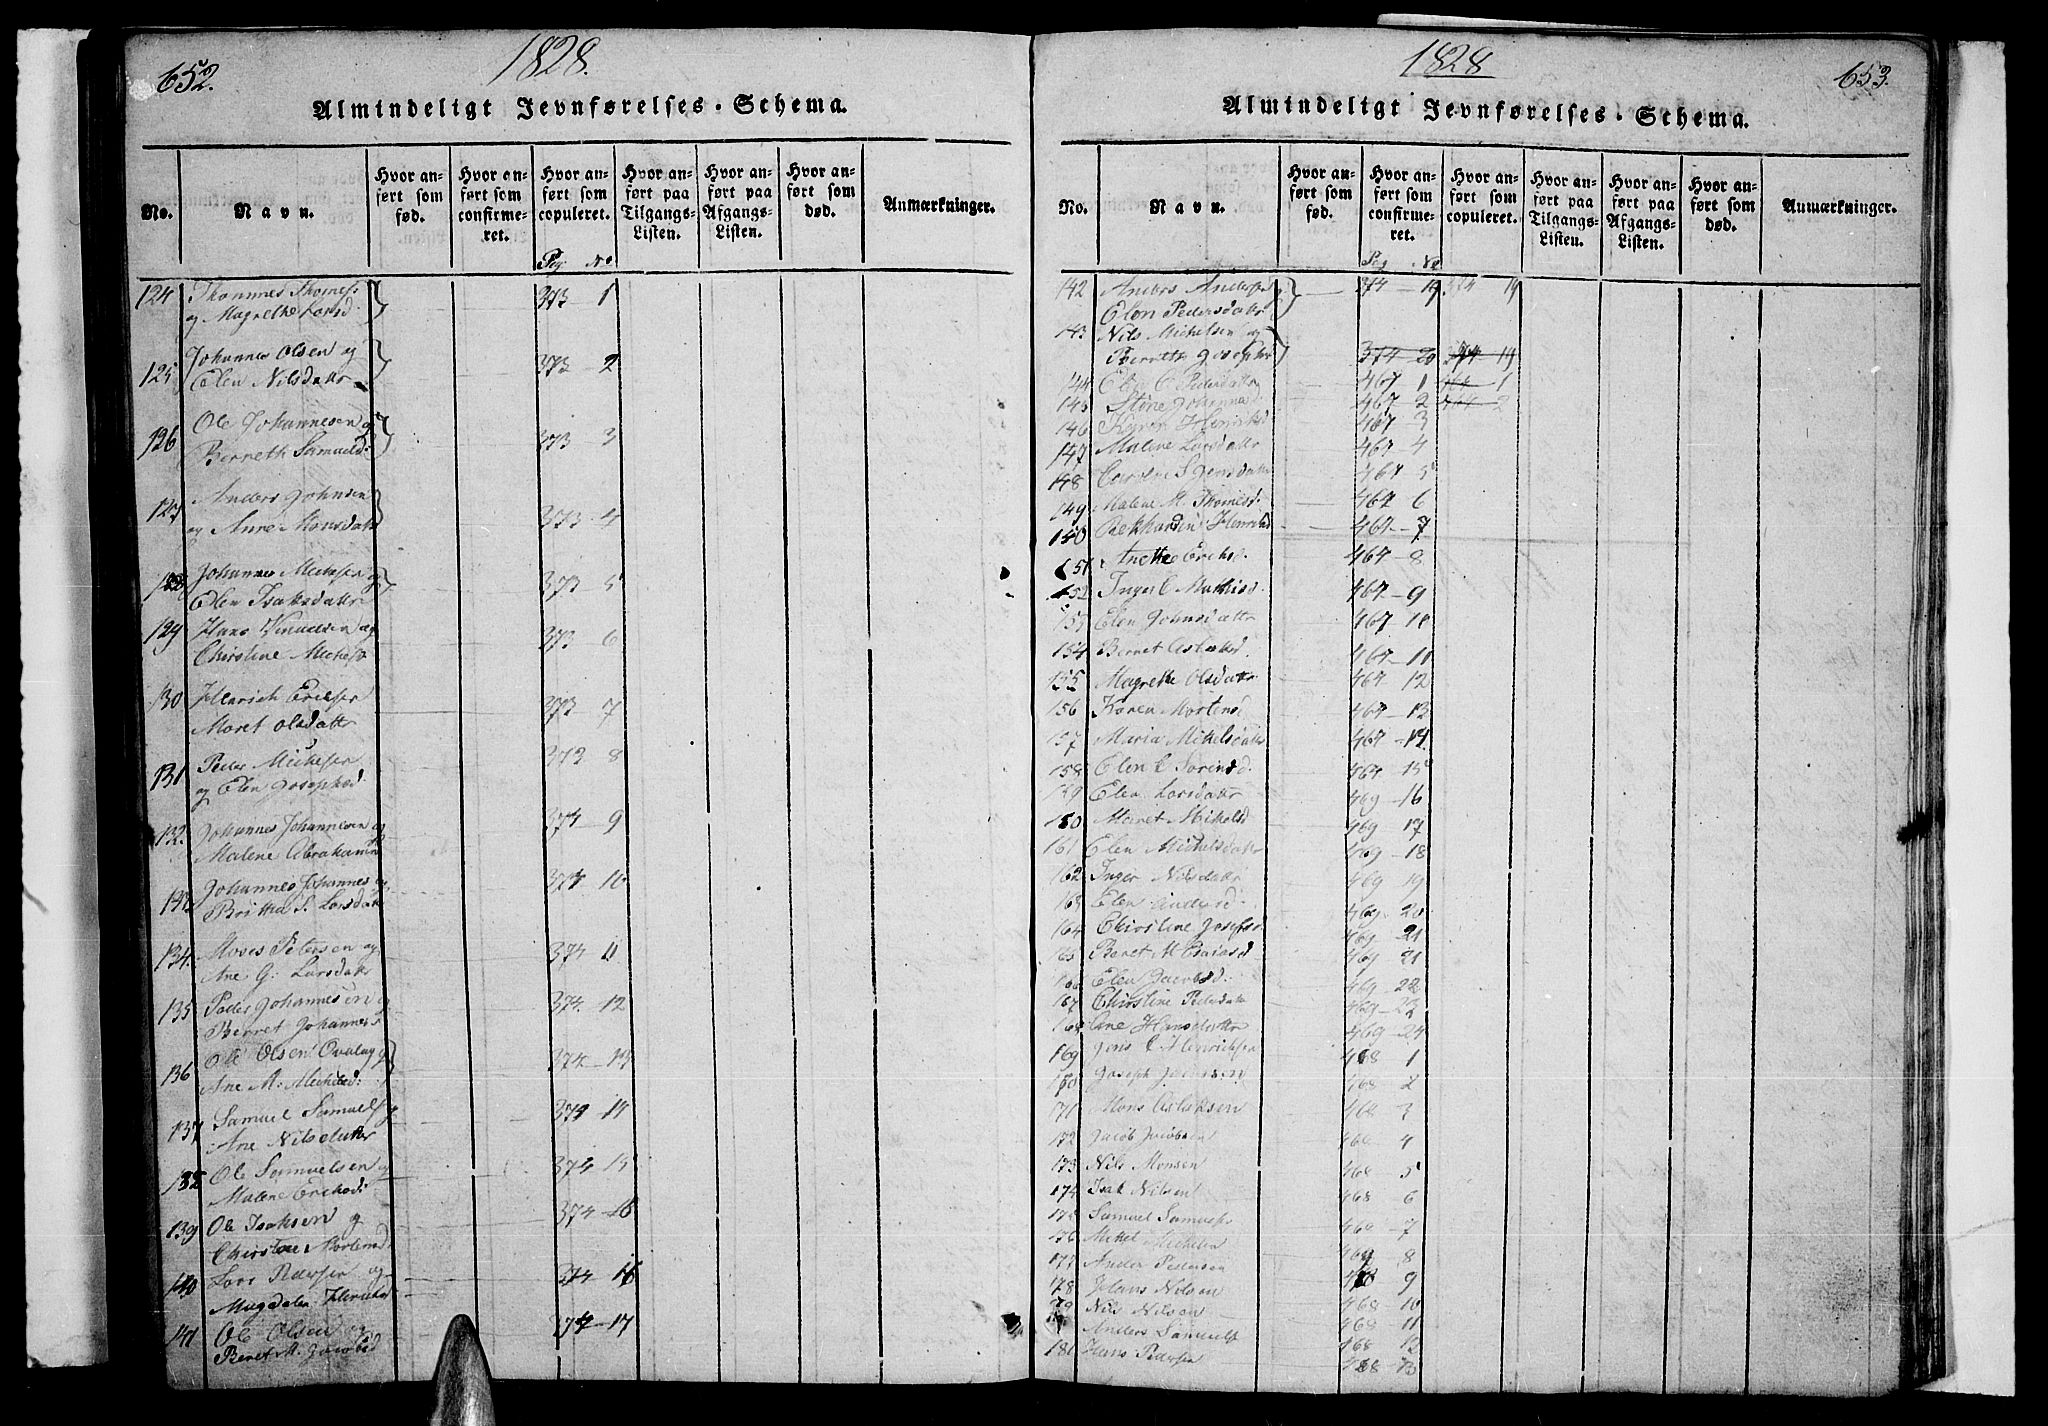 652.
1828.
Almindeligt Jevnførelses-Schema.
No.
Navn.
Hvor anført som fød.
Hvor anført som confirmeret.
Hvor anført som copuleret.
Hvor anført paa Tilgangs-Listen.
Hvor anført paa Afgangs-Listen.
Hvor anført som død.
Anmærkninger.
Pag No
124 Thommes Thomes:
og Magrethe Larsd: 373 1
125 Johannes Olsen og
Elen Nilsdattr 373 2
126 Ole Johannesen og
Berreth Samuelsd: 373 3
127 Anders Johnsen
og Anne Monsdattr 373 4
Johannes Mickelsen og
Elen Isaksdattr 373 5
129 Hans
Christine 373 6
130 Henrich Ericksen
Maret Olsdattr 373 7
131 Peder Mickelsen
og Elen Josephsd. 373 8
132. Johannes Johannesen og
Malene Abraham 374 9
Johannes Johannes og
Britha S. Larsdattr 374 10
134. Moses Petersen og
Ane G: Larsdattr 374 11
135 Peder Johannesen og
Berret Johannes 374. 12
136 Ole Olsen og
Ane M: 374 13
137 Samuel Samuels og
Ane Nilsdatter 374 14
138 Ole Samuelsen og
Malene Ericksd: 374 15
139 Ole Isaksen og
Christine Mortensd 374 16
140 Lars Pedersen og
Magdalen 374 16
141 Ole Olsen og
Beret M. Jacobsd 374 17
1828
653.
Almindeligt Jevnførelses-Schema.
No.
Navn.
Hvor anført som fød.
Hvor anført som confirmeret.
Hvor anført som copuleret.
Hvor anført paa Tilgangs-Listen.
Hvor anført paa Afgangs-Listen.
Hvor anført som død.
Anmærkninger.
Pag No
142 Anders Anders 374 19 374 19
Elen Pedersdattr
143 Nils Mickelsen og
Berreth Josephs 374 20 374 19
144 Elen C Pedersdattr 467 1 468 1
145 Stine Johannesd. 467 2 468 2
146 Karen Henriksd 467 3
147 Malene Larsdattr 467 4
148 Jensdattr 467 5
149 Malene M. Thomesd. 467 6
150 467 7
151 Anethe Ericksd. 467 8
152 Inger C Mathisd. 467 9
153 Elen Johnsdattr 467 10
154 Berret Aslaksd. 467 11
155 Magrethe Olsdattr 467 12
156 Karen Mortensd 467 13
157 Maria Mikelsdattr 467 14
158 Elen C Sorensd. 467 15
159 Elen Larsdattr 469 16
160 Maret Mikelsd 469 17
161 Elen Mickelsdattr 469 18
162 Inger Nilsdattr 469 19
163 Elen Andersd. 469 20
164 Christine Josefsd. 469 21
165 Beret M Esaiasd 469 21
166 Elen Jacobsd. 469 22
167 Christine Pedersdattr 469 23
168 Ane Hansdattr 469 24
169 Jens C Henrichsen 468 1
Joseph 468 2
171 Mons Aslaksen 468 3
172 Jacob Jacobsen 468 4
173 Nils Monsen 468 5
174 Isak Nilsen 468 6
175 Samuel Samuels 468 7
176 Mikel Mickelsen 468 8
177 Anders Pedersen 468 9
178 Hans Nilsen 468 10
179 Nils Nilsen 468 11
Anders Samuels 468 12
181 Hans Pedersen 468 13